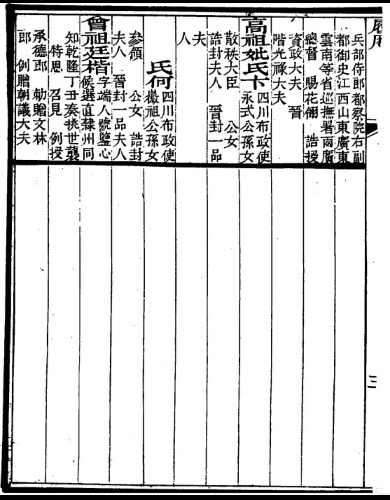 履歷
兵部侍郎都察院右副
都御史江西山東廣東
雲南等省巡撫署兩廣
總督 賜花翎 誥授
資政大夫 晉
階光祿大夫
高祖妣氏卞 四川布政使
永式公孫女
散秩大臣 公女
誥封夫人 晉封一品
夫
人
氏何 四川布政使
公孫女
參領 公女 誥封
夫人 晉封一品夫人
曾祖廷楷 字端人號鑒心
候選直隸州同
知乾隆丁 奏 世襲
特恩 召見 例授
承德郎 勅贈文林
郎 例贈朝議大夫
三